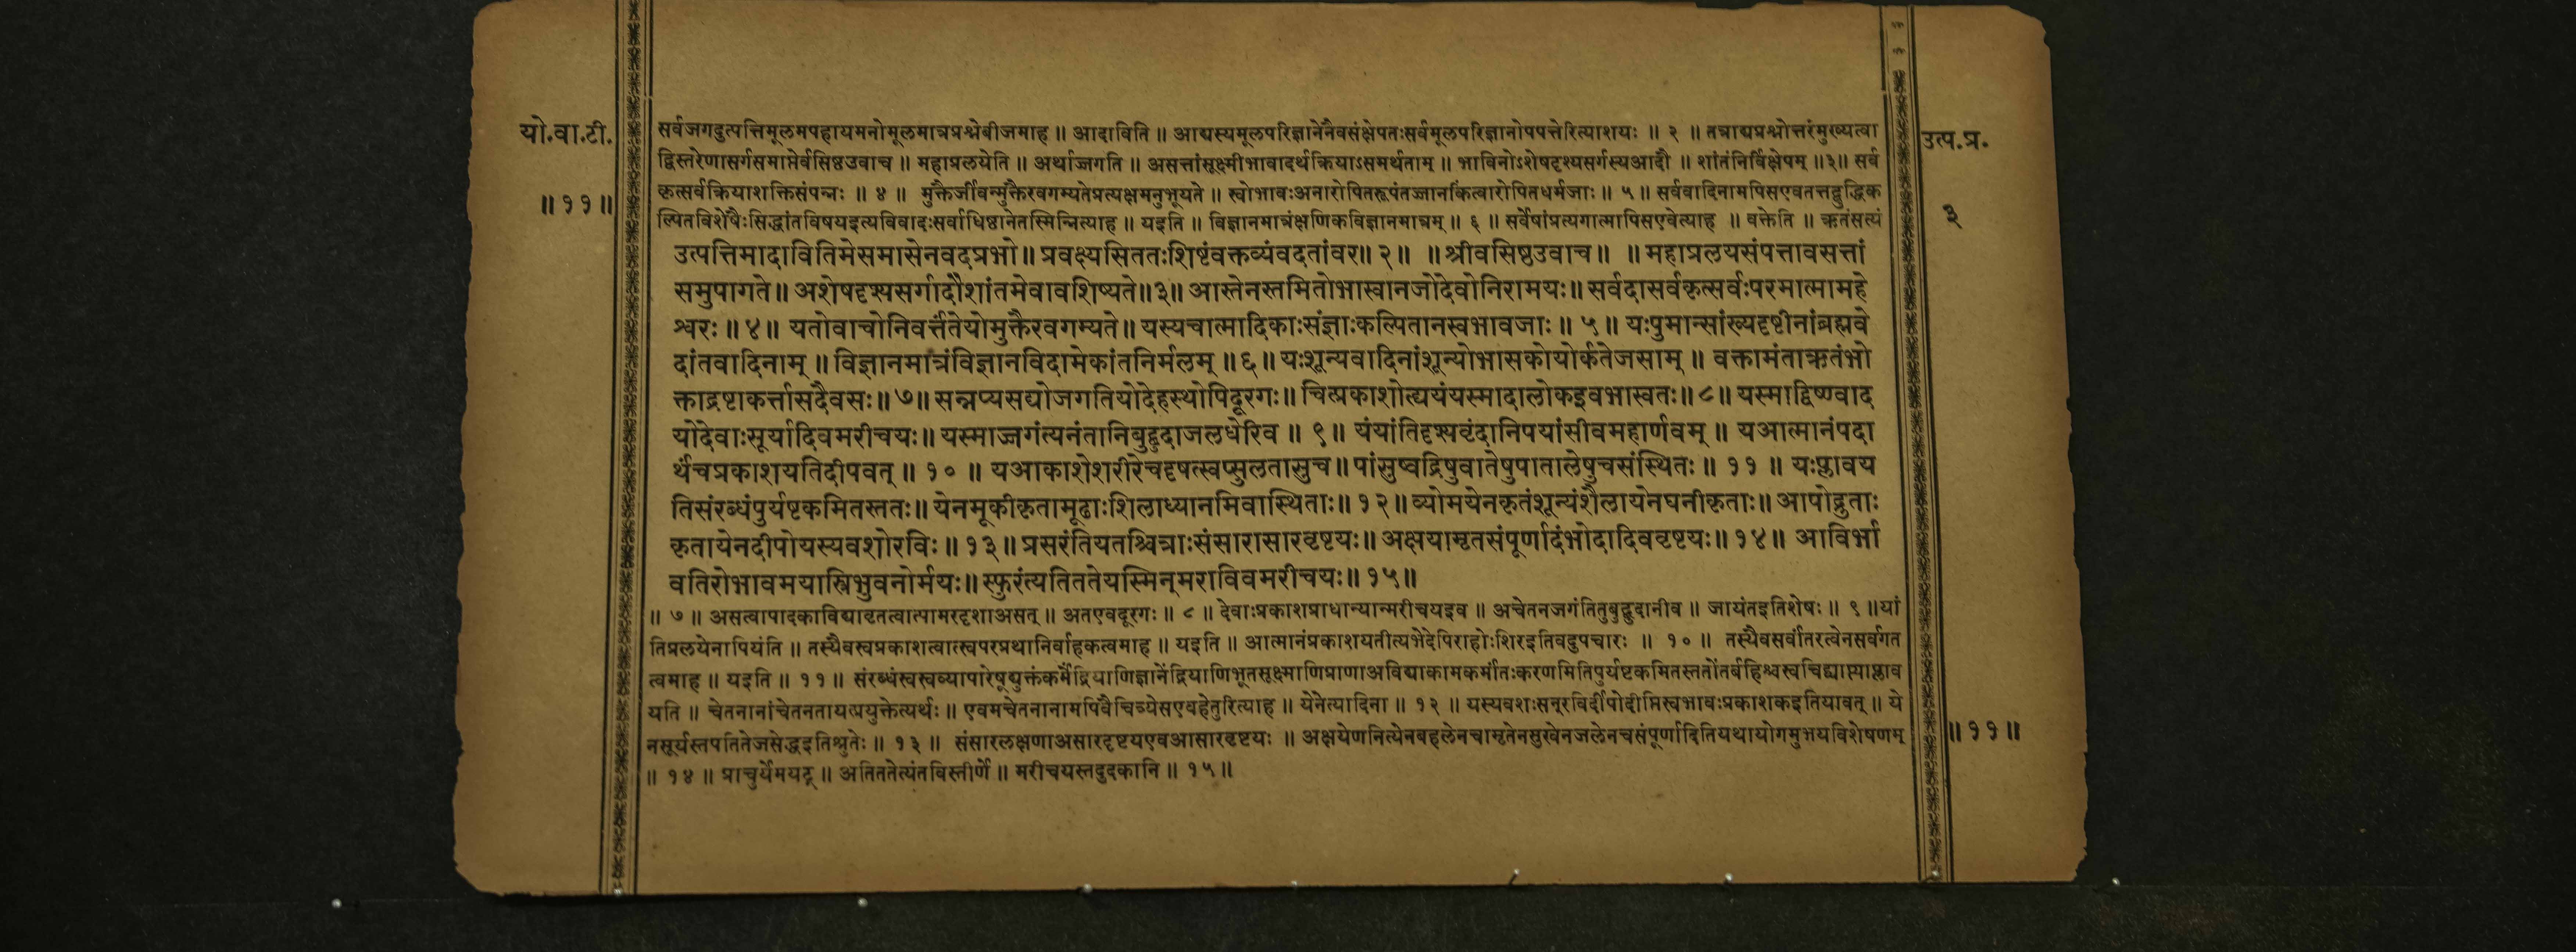 यो.वा.टी.
॥११॥
सर्वजगदुत्पत्तिमूलमपहायमनोमूलमात्रप्रश्नेबीजमाह ॥ आदाविति ॥ आद्यस्यमूलपरिज्ञानेनैवसंक्षेपतःसर्वमूलपरिज्ञानोपपत्तेरित्याशयः ॥ २ ॥ तत्राद्यप्रश्नोत्तरंमुख्यत्वा
द्विस्तरेणासर्गसमाप्तेर्वसिष्ठउवाच ॥ महाप्रलयेति ॥ अर्थाज्जगति ॥ असत्तांसूक्ष्मीभावादर्थक्रियाऽसमर्थताम् ॥ भाविनोऽशेषदृश्यसर्गस्यआदौ ॥ शांतंनिर्विक्षेपम् ॥३॥ सर्व
कृत्सर्वक्रियाशक्तिसंपन्नः ॥ ४ ॥ मुक्तैर्जीवन्मुक्तैरवगम्यतेप्रत्यक्षमनुभूयते ॥ स्वोभावःअनारोपितरूपंतज्जानकिंत्वारोपितधर्मजाः ॥ ५ ॥ सर्ववादिनामपिसएवतत्तद्बुद्धिक
ल्पितविशेषैःसिद्धांतविषयइत्यविवादःसर्वाधिष्ठानेतस्मिन्नित्याह ॥ यइति ॥ विज्ञानमात्रंक्षणिकविज्ञानमात्रम् ॥ ६ ॥ सर्वेषांप्रत्यगात्मापिसएवेत्याह ॥ वक्तेति ॥ ऋतंसत्यं
उत्पत्तिमादावितिमेसमासेनवदप्रभो॥ प्रवक्ष्यसिततःशिष्टंवक्तव्यंवदतांवर॥ २॥ ॥ श्रीवसिष्ठउवाच॥ ॥ महाप्रलयसंपत्तावसत्तां
समुपागते॥ अशेषदृश्यसर्गादौशांतमेवावशिष्यते॥३॥ आस्तेनस्तमितोभास्वानजोदेवोनिरामयः॥ सर्वदासर्वकृत्सर्वःपरमात्मामहे
श्वरः ॥ ४॥ यतोवाचोनिवर्त्तंतेयोमुक्तैरवगम्यते॥ यस्यचात्मादिकाःसंज्ञाःकल्पितानस्वभावजाः ॥ ५॥ यःपुमान्सांख्यदृष्टीनांब्रह्मवे
दांतवादिनाम् ॥ विज्ञानमात्रंविज्ञानविदामेकांतनिर्मलम् ॥६॥ यःशून्यवादिनांशून्योभासकोयोर्कतेजसाम् ॥ वक्तामंताऋतंभो
क्ताद्रष्टाकर्त्तासदैवसः॥ ७॥ सन्नप्यसद्योजगतियोदेहस्थोपिदूरगः॥ चित्प्रकाशोत्द्ययंयस्मादालोकइवभास्वतः॥ ८॥ यस्माद्विष्ण्वाद
योदेवाःसूर्यादिवमरीचयः॥ यस्माज्जगंत्यनंतानिबुद्बुदाजलधेरिव ॥ ९॥ यंयांतिदृश्यवृंदानिपयांसीवमहार्णवम् ॥ यआत्मानंपदा
र्थंचप्रकाशयतिदीपवत् ॥ १० ॥ यआकाशेशरीरेचदृषत्स्वप्सुलतासुच॥ पांसुष्वद्रिषुवातेषुपातालेषुचसंस्थितः॥ ११ ॥ यःप्लावय
तिसंरब्धंपुर्यष्टकमितस्ततः॥ येनमूकीकृतामूढाःशिलाध्यानमिवास्थिताः॥ १२॥ व्योमयेनकृतंशून्यंशैलायेनघनीकृताः॥ आपोद्रुताः
कृतायेनदीपोयस्यवशोरविः॥ १३॥ प्रसरंतियतश्चित्राःसंसारासारवृष्टयः॥ अक्षयामृतसंपूर्णादंभोदादिववृष्टयः॥ १४॥ आविर्भा
वतिरोभावमयास्त्रिभुवनोर्मयः॥ स्फुरंत्यतिततेयस्मिन्मराविवमरीचयः॥ १५॥
॥ ७ ॥ असत्वापादकाविद्यावृतत्वात्पामरदृशाअसत् ॥ अतएवदूरगः ॥ ८ ॥ देवाःप्रकाशप्राधान्यान्मरीचयइव ॥ अचेतनजगंतितुबुद्बुदानीव ॥ जायंतइतिशेषः ॥ ९ ॥यां
तिप्रलयेनापियंति ॥ तस्यैवस्वप्रकाशत्वात्स्वपरप्रथानिर्वाहकत्वमाह ॥ यइति ॥ आत्मानंप्रकाशयतीत्यभेदेपिराहोःशिरइतिवदुपचारः ॥ १० ॥ तस्यैवसर्वांतरत्वेनसर्वगत
त्वमाह ॥ यइति ॥ ११ ॥ संरब्धंस्वस्वव्यापारेषूद्युक्तंकर्मेंद्रियाणिज्ञानेंद्रियाणिभूतसूक्ष्माणिप्राणाअविद्याकामकर्मांतःकरणमितिपुर्यष्टकमितस्ततोंतर्बहिश्चस्वचिद्व्याप्त्याप्लाव
यति ॥ चेतनानांचेतनतायत्प्रयुक्तेत्यर्थः ॥ एवमचेतनानामपिवैचित्र्येसएवहेतुरित्याह ॥ येनेत्यादिना ॥ १२ ॥ यस्यवशःसन्रविर्दीपोदीप्तिस्वभावःप्रकाशकइतियावत् ॥ ये
नसूर्यस्तपतितेजसेद्धइतिश्रुतेः ॥ १३ ॥ संसारलक्षणाअसारदृष्टयएवआसारवृष्टयः ॥ अक्षयेणनित्येनबहलेनचामृतेनसुखेनजलेनचसंपूर्णादितियथायोगमुभयविशेषणम्
॥ १४ ॥ प्राचुर्येमयट् ॥ अतिततेत्यंतविस्तीर्णे ॥ मरीचयस्तदुदकानि ॥ १५ ॥
उत्प.प्र.
३
॥११॥